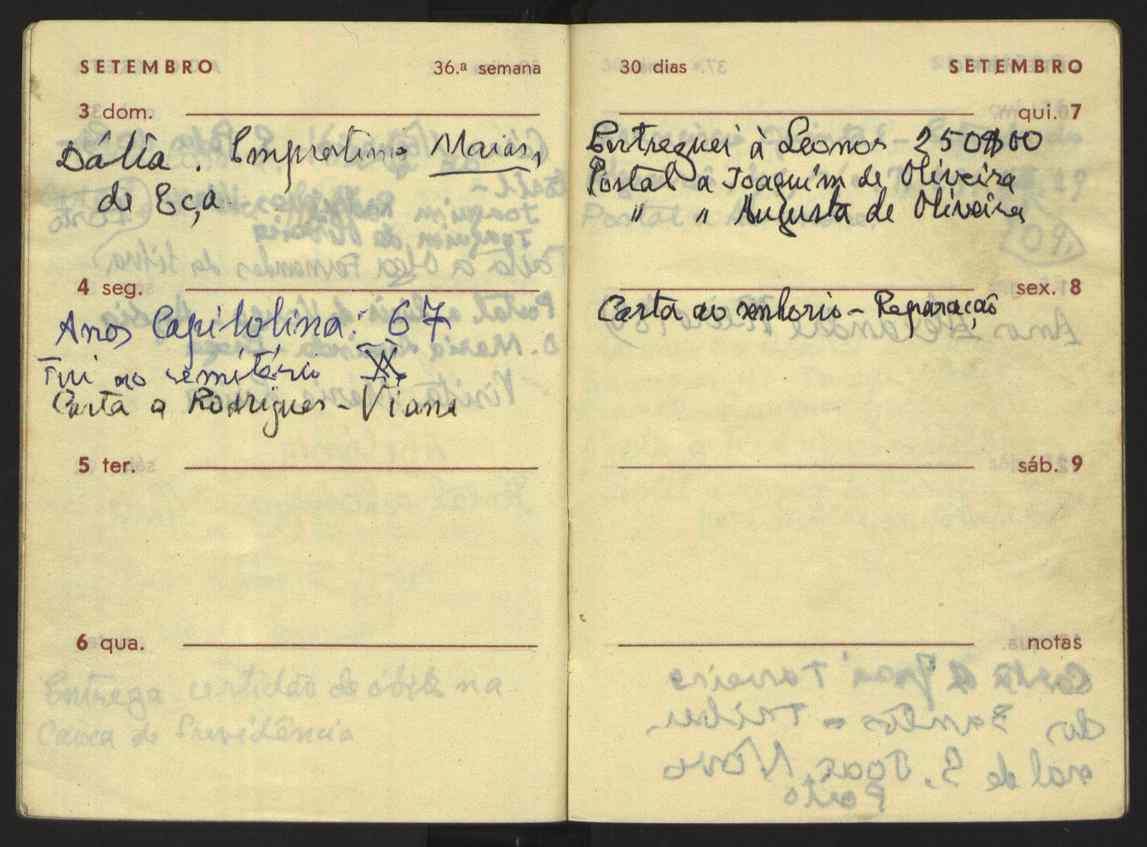 SETEMBRO 36.ª semana
3 dom.
Dália. Emprestimo Maias,
de Eça.
4 seg.
Anos Capitolina: 67
Fui ao semitério
Carta a Rodrigues - Viana
5 ter.
6 qua.
Entrega certidão de óbito na
Caixa de Previdência
30 dias SETEMBRO
qui. 7
Entreguei à Leonor 250$00
Postal a Joaquim de Oliveira
" " Augusta de Oliveira
sex. 8
Carta ao senhorio - Reparação
sáb. 9
notas